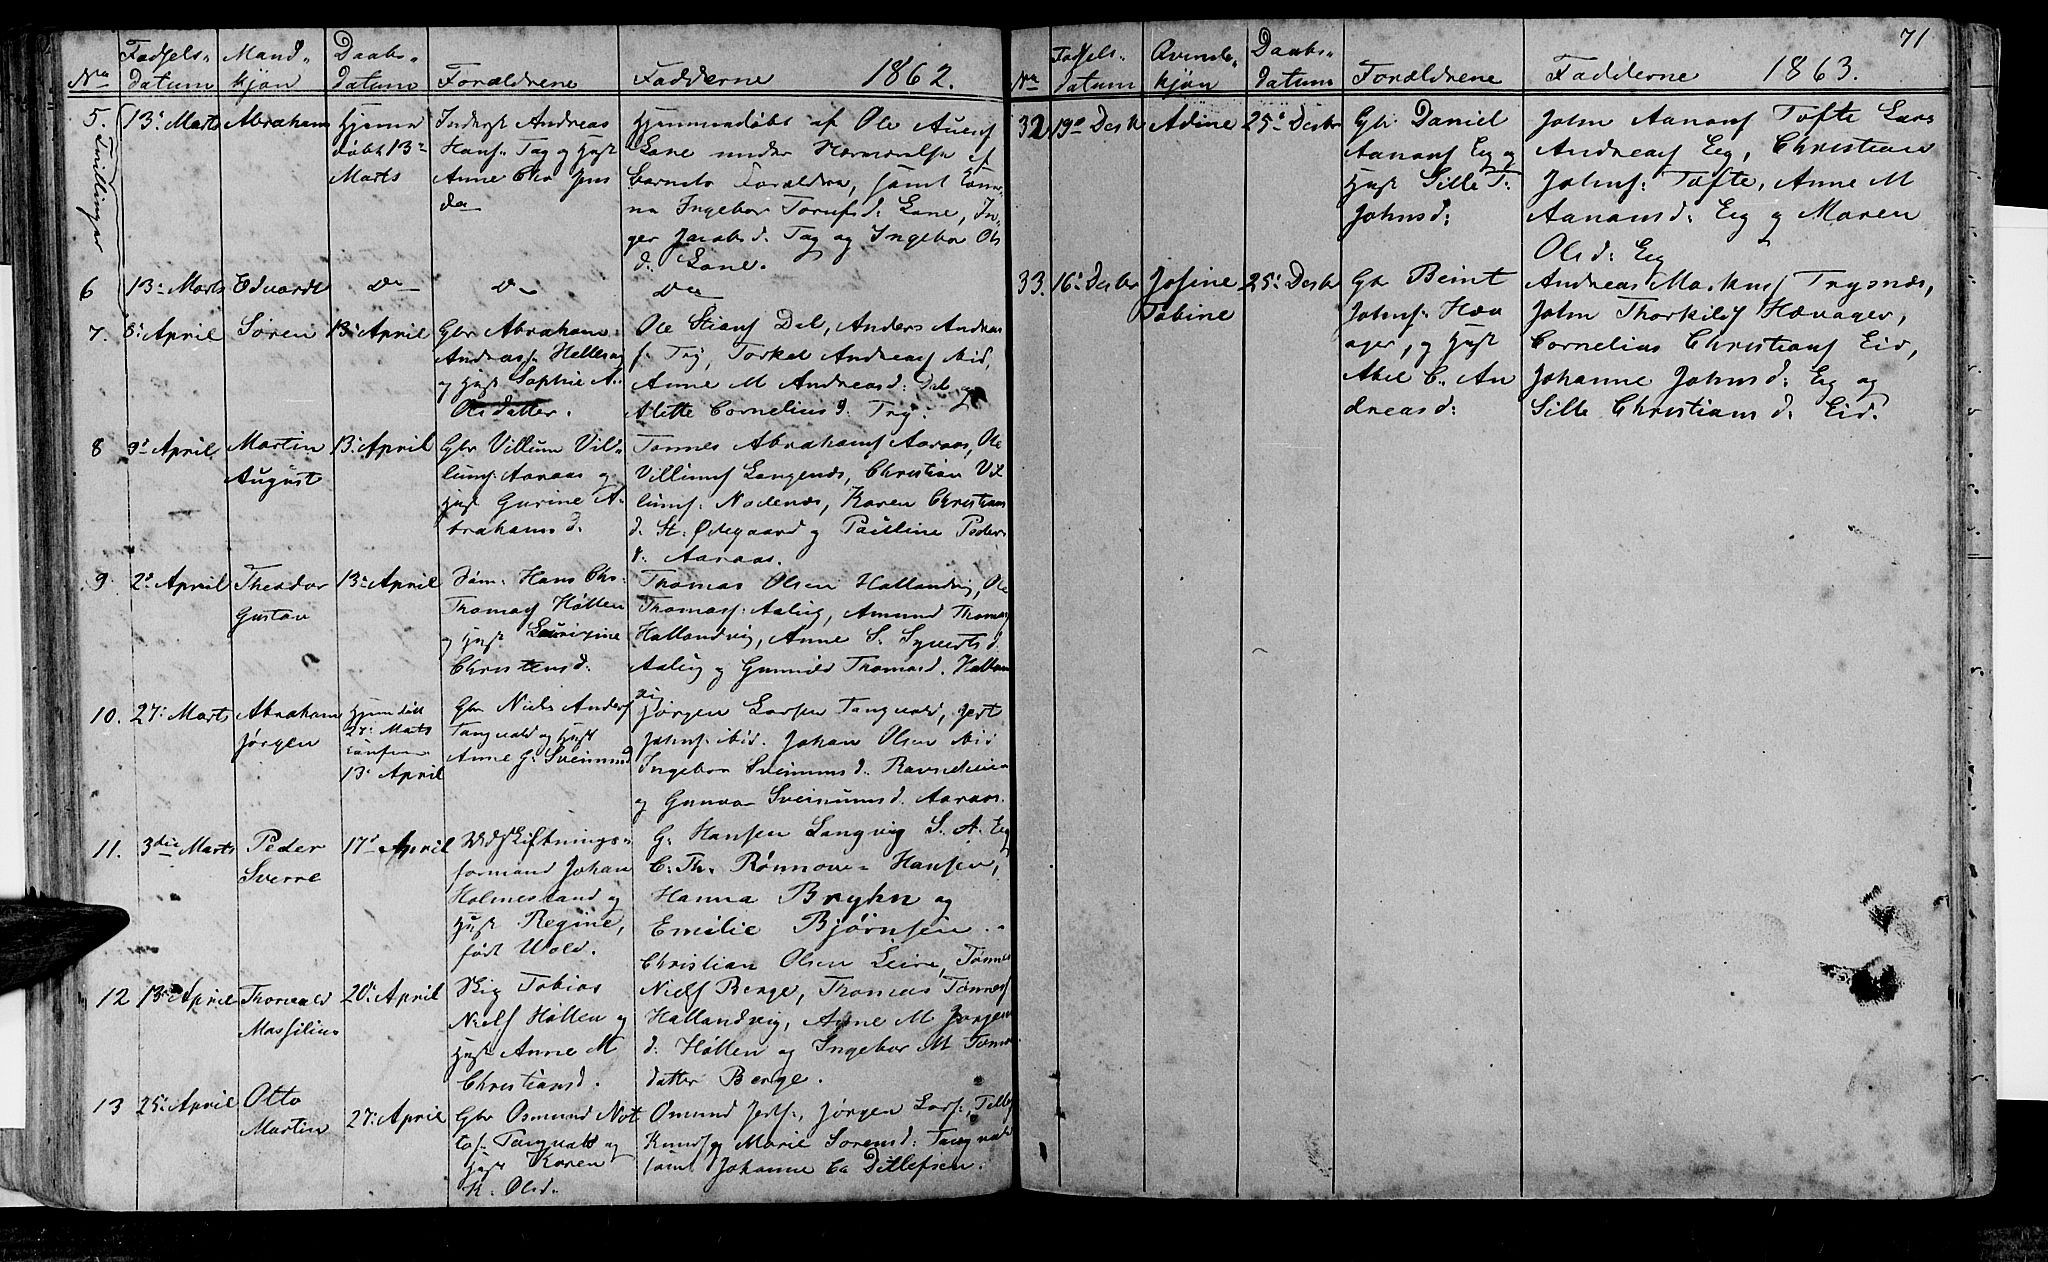 No Fødsels- datum Mand- kjøn Daabs- datum Forældrene Fadderne 1862.
5. 13de Marts Abraham Hjemmedøbt 13de Marts
Tvillinger
Indkst Andreas
Hans: Tag og Hust
Anne Chr Jens
da
Hjemmedøbt af Ole Auens
Lone under Nærværelse af
Barnets Forældre, samt Kone
na Ingebor Torufsd: Lone, In-
ger Jacobsd: Tag og Ingebor Ols
d: Lone.
6 13de Marts Edvardt do do do
7. 8de April Søren 13de April
Gbr Abraham
Andreass: Hellesø
og Hust Sophie A.
Olsdatter.
Ole Stians Dal, Anders Andreas
s: Try, Torkel Andreas ibid,
Anne M Andreasd: Dal og
Alette Cornelius d: Try.
8 9de April Martin August 13de April
Gbr Villum Vil-
lums: Aaraas og
Hust Gurine A-
brahamsd.
Tønnes Abrahams Aaraas, Ole
Villums Langenæs, Christian Vil
lums: Nodenæs, Karen Christians
d. St. Ødegaard og Pauline Peder
d. Aaraas.
9. 2de April Theodor Gustav 13de April
Søm: Hans Chr.
Thomas Høllen
og Hust
Christensd.
Thomas Olsen Hallandvig, Ole
Thomass: Aalvig, Amund Thomas
Hallandvig, Anne S. Syvertsd.
Aalvig og Gunnild Thomasd. Hallan
vig
10. 27de Marts Abraham Jørgen Hjemdøbt 27. Marts 13de April
Gbr Niels Anders
Tangvald og Hust
Anne G. Sveinund
Jørgen Larsen Tangvald, Jert
Johns: ibid. Johan Olsen ibid
Ingebor Sveinunsd. Ravnehei
og Gunvor Sveinunsd. Aaraas.
11. 3die Marts Peder Sverre 17de April
Udskiftnings-
formand Johan
Holmesland og
Hust Regine,
født Wold.
G. Hansen Langvig S. A. Eeg
C. Th. Rønnov- Hansen,
Hanna Bryhn og
Emilie Bjørnsen.
12 13de April Thorvald Massilius 20de April
Skip Tobias
Niels Høllen og
Hust Anne M
Christiansd.
Christian Olsen Leire, Tønnes
Niels Berge, Thomas Tønnes
Hallandvig, Anne M Jørgen
d. Høllen og Ingebor M Tønnes
datter Berge.
13 25de April Otto Martin 27de April
Gbr Osmund Not
tos Tangvald og
Hust Karen
K. Olsd.
Omund Jerts:, Jørgen Lars:, Tellef
Knuds og Marie Sørensd: Tangvald
samt Johanne Ca Ditlefsen.
71
No Fødsels- datum Qvinde- kjøn Daabs- datum Forældrene Fadderne 1863.
32 19de Desbr Adine 25de Desbr
Gbr Daniel
Aanons Eeg og
Hust Sille T.
Johnsd:
John Aanons Tofte Lars
Andreas Eeg, Christian
Johns: Tofte, Anne M
Aanonsd: Eeg og Maren
Olsd: Eeg
33. 16de Desbr Josine Tobine 25de Desbr
Gbr Beint
Johns: Høv
ager, og Hust
Abel C. An
dreasd:
Andreas Markus Trysnes,
John Thorkilds Høvager,
Cornelius Christians Eid,
Johanne Johnsd: Eeg og
Sille Christians d: Eid.